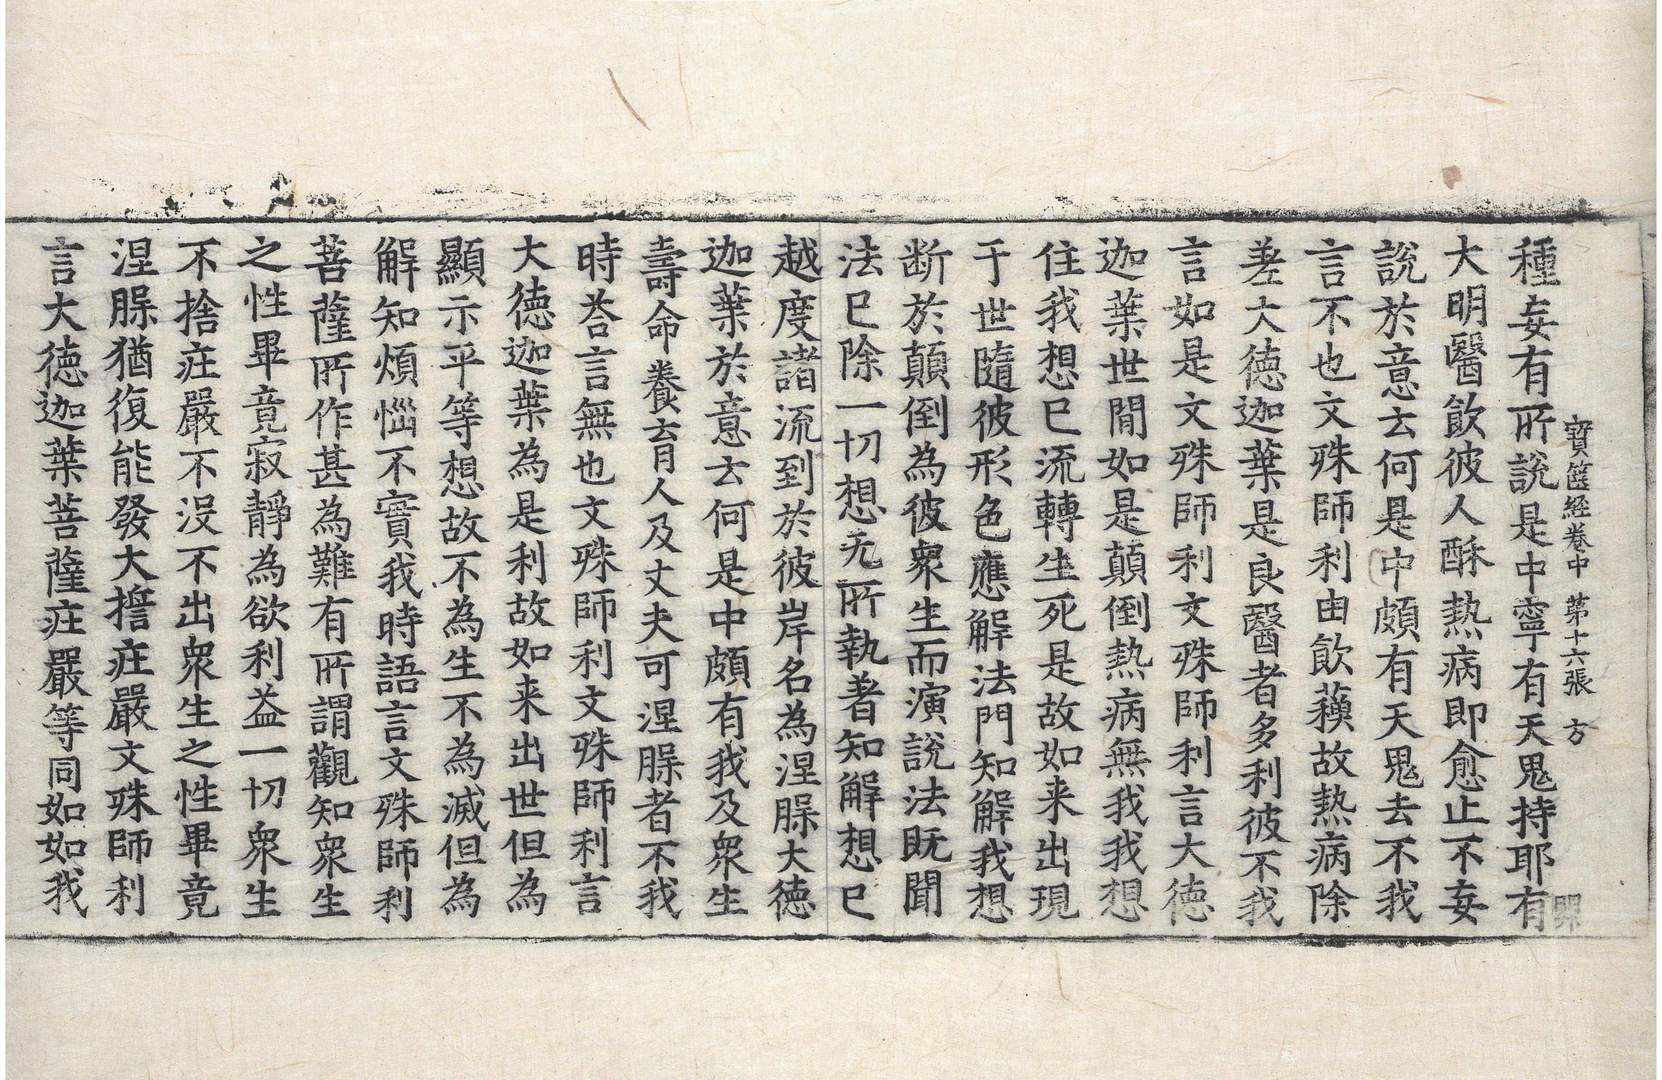 寶篋經卷中 第十六張 方
種妄有所說是中寧有天鬼持耶有
大明醫飲彼人酥熱病即愈止不妄
說於意云何是中頗有天鬼去不我
言不也文殊師利由飲蘓故熱病除
差大德迦葉是良醫者多利彼不我
言如是文殊師利文殊師利言大德
迦葉世間如是顛倒熱病無我我想
住我想已流轉生死是故如来出現
于世隨彼形色應解法門知解我想
断於顛倒為彼衆生而演說法既聞
法已除一切想无所執著知解想已
越度諸流到於彼岸名為涅槃大德
迦葉於意云何是中頗有我及衆生
壽命養育人及丈夫可涅槃者不我
時荅言無也文殊師利文殊師利言
大德迦葉為是利故如来出世但為
顯示平等想故不為生不為滅但為
解知煩惱不實我時語言文殊師利
菩薩所作甚為難有所謂觀知衆生
之性畢竟寂靜為欲利益一切衆生
不捨庄嚴不没不出衆生之性畢竟
涅槃猶復能發大擔庄嚴文殊師利
言大德迦葉菩薩庄嚴等同如如我